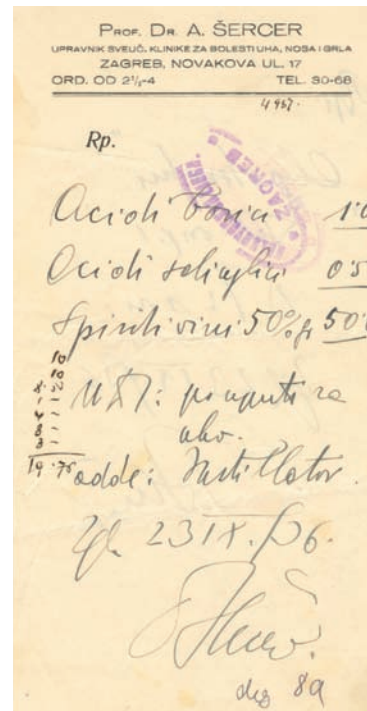 PROF. DR. A. ŠERCER
UPRAVNIK SVEUČ. KLINIKE ZA BOLESTI UHA, NOSA I GRLA
ZAGREB, NOVAKOVA UL. 17
ORD. OD 2½-4 TEL. 30-68
4957.
Rp.
ZAGREB
Acidi borici 1·0
Acidi salicylici 0·5
Spiriti vini 50%
MDS: po uputi za
uho.
adde: Instillator.
Zgb. 23 IX. 36.